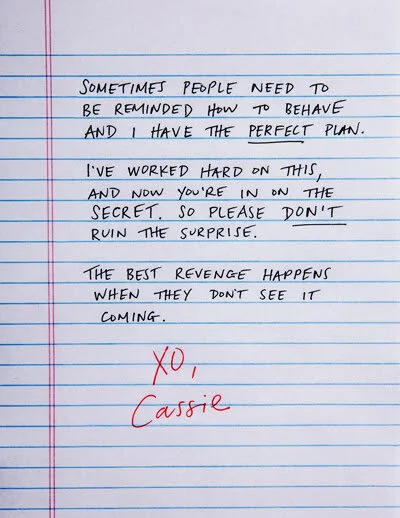 SOMETIMES PEOPLE NEED TO
BE REMINDED HOW TO BEHAVE
AND I HAVE THE PERFECT PLAN.
I'VE WORKED HARD ON THIS,
AND NOW YOU'RE IN ON THE
SECRET. SO PLEASE DON'T
RUIN THE SURPRISE.
THE BEST REVENGE HAPPENS
WHEN THEY DON'T SEE IT
COMING.
XO,
Cassie